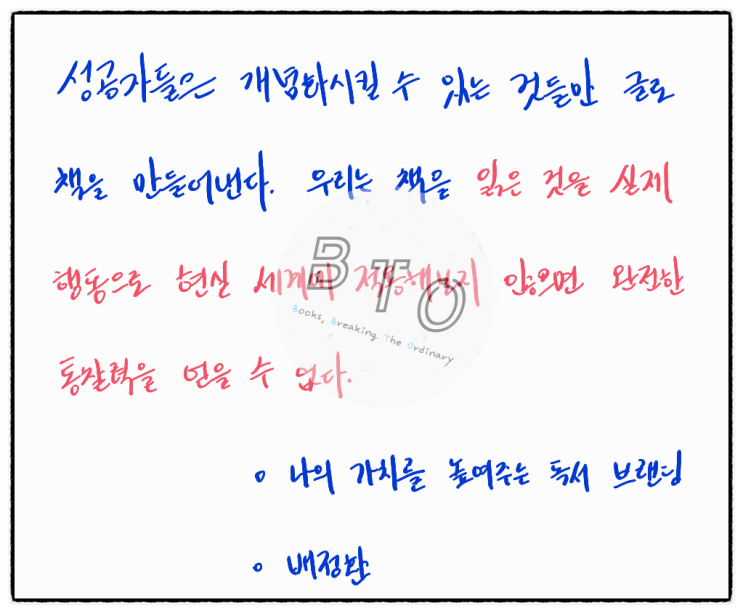 성공자들은 개념화시킬 수 있는 것들만 글로
책을 만들어낸다. 우리는 책을 읽은 것을 실제
행동으로 현실 세계에 적용해보지 않으면 완전한
통찰력을 얻을 수 없다.
BTO
Books, Breaking The Ordinary
• 나의 가치를 높여주는 독서 브랜딩
• 배정환